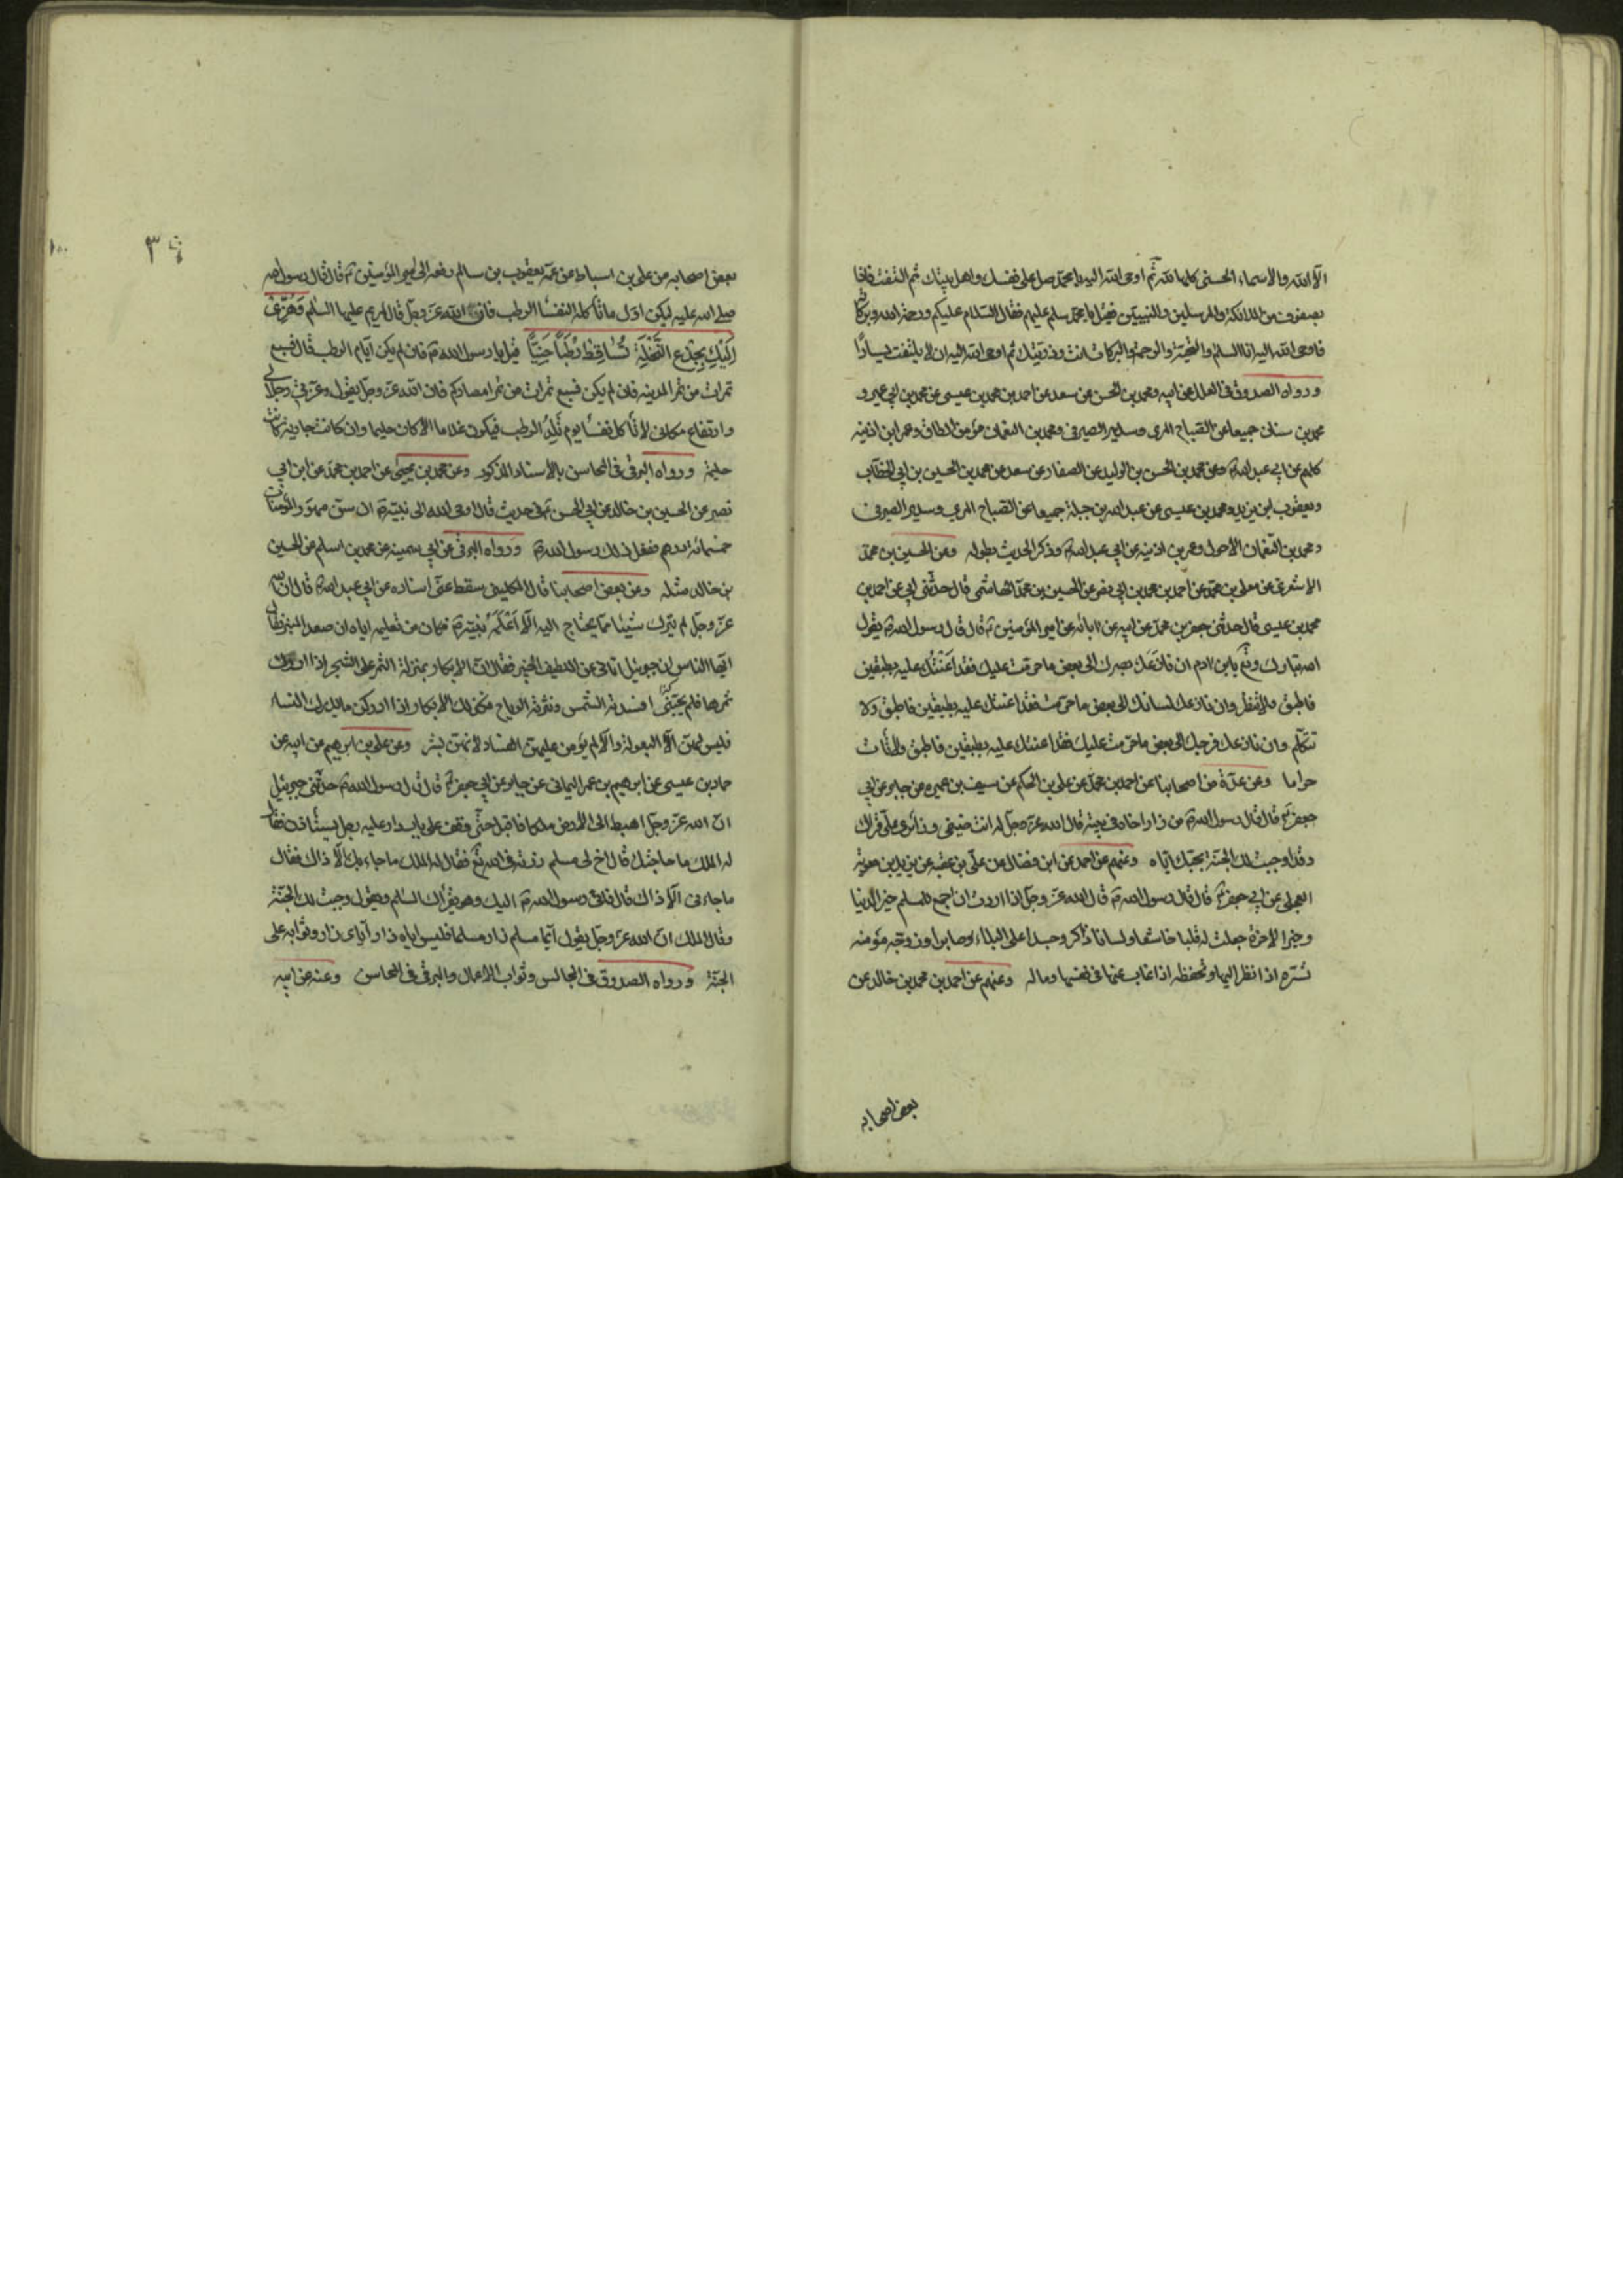 الا الله والاسماء الحسنى كلها لله ثم اوحى الله اليه يا محمد صل على نفسك واهل بيتك ثم التفت فاذا
بصفوف من الملائكة والمرسلين والنبيين فقيل يا محمد سلم عليهم فقال السلام عليكم ورحمة الله وبركاته
فاوحى الله اليه انا السلام والتحية والرحمة والبركات انت وذريتك ثم اوحى الله اليه ان لا يلتفت يسارا
ورواه الصدوق فى العلل عن ابيه ومحمد بن الحسن عن سعد عن احمد بن محمد بن عيسى عن محمد بن ابي عمير و
محمد بن سنان جميعا عن الصباح المزى وسدير الصيرفى ومحمد بن النعمان مؤمن الطاق وعمر ابن اذينه
كلهم عن ابي عبد الله وعن محمد بن الحسن بن الوليد عن الصفار عن سعد عن محمد بن الحسين بن ابي الخطاب
ويعقوب ابن يزيد ومحمد بن عيسى عن عبد الله بن جبلة جميعا عن الصباح المزى وسدير الصيرفى
ومحمد بن النعمان الاحول وعمر بن اذينه عن ابي عبد الله وذكر الحديث بطوله وعن الحسين بن محمد
الاشعرى عن معلى بن محمد عن احمد بن محمد بن ابي نصر عن الحسين بن محمد الهاشمى قال حدثنى ابي عن احمد بن
محمد بن عيسى قال حدثنى جعفر بن محمد عن ابيه عن ابائه عن امير المؤمنين ع قال قال رسول الله ص يقول
الله تبارك وتع يابن ادم ان نازعك بصرك الى بعض ما حرمت عليك فقد اعنتك عليه بطبقين
فاطبق ولا تنظر وان نازعك لسانك الى بعض ما حرمت فقد اعنتك عليه بطبقين فاطبق ولا
تتكلم وان نازعك فرجك الى بعض ما حرمت عليك فقد اعنتك عليه بطبقين فاطبق ولا تات
حراما وعن عدة من اصحابنا عن احمد بن محمد عن على بن الحكم عن سيف بن عميره عن جابر عن ابي
جعفر ع قال قال رسول الله ص من زار اخاه فى بيته قال الله عز وجل له انت ضيفى وزائرى على قراك
وقد اوجبت لك الجنة بحبك اياه وعنهم عن احمد عن ابن فضال عن على بن عقبه عن بريد بن معوية
العجلى عن ابي جعفر ع قال قال رسول الله ص قال الله عز وجل اذا اردت ان اجمع للمسلم خير الدنيا
وخير الاخرة جعلت له قلبا خاشعا ولسانا ذاكر وجسدا على البلاء صابرا وزوجة مؤمنه
تسره اذا نظر اليها وتحفظه اذا غاب عنها فى نفسها وماله وعنهم عن احمد بن محمد بن خالد عن
بعض اصحابه
٣٩
١٠٠
بعض اصحابه عن على بن اسباط عن عمه يعقوب بن سالم رفعه الى امير المؤمنين ع قال قال رسول الله
صلى الله عليه ليكن اول ما تاكله النفسا الرطب فان الله عز وجل قال لمريم عليها السلام وَهُزِّى
اِلَيْكِ بِجِذْعِ النَّخْلَةِ تُسَاقِطْ رُطَبًا جَنِيًّا قيل يا رسول الله ص فان لم يكن ايام الرطب قال فسبع
تمرات من تمر المدينه فان لم يكن فسبع تمرات من تمر امصاركم فان الله عز وجل يقول وعزتى وجلالى
وارتفاع مكانى لا تأكل نفسا يوم تلد الرطب فيكون غلاما الا كان حليما وان كانت جارية كانت
حليمة ورواه البرقى فى المحاسن بالاسناد المذكور وعن محمد بن يحيى عن احمد بن محمد عن ابن ابي
نصر عن الحسين بن خالد عن ابي الحسن ع فى حديث قال اوحى الله الى نبيه ص ان سن مهور المؤمنات
خمسمائة درهم ففعل ذلك رسول الله ص ورواه البرقى عن ابي سمينه عن محمد بن اسلم عن الحسين
بن خالد مثله وعن بعض اصحابنا قال الكلينى سقط عنى اسناده عن ابي عبد الله ع قال ان الله
عز وجل لم يترك شيئا مما يحتاج اليه الا اعلمه نبيه ص فكان من تعليمه اياه ان صعد المنبر فقال
ايها الناس ان جبرئيل اتانى عن اللطيف الخبير فقال ان الابكار بمنزلة الثمر على الشجر اذا ادرك
ثمرها فلم يجتنى افسدته الشمس ونثرته الرياح وكذلك الابكار اذا ادركن ما يدرك النساء
فليس لهن الا البعولة والا لم يؤمن عليهن الفساد لانهن بشر وعن على بن ابرهيم عن ابيه عن
حماد بن عيسى عن ابرهيم بن عمر اليمانى عن جابر عن ابي جعفر ع قال قال رسول الله ص حدثنى جبرئيل
ان الله عز وجل اهبط الى الارض ملكا فاقبل حتى وقف على باب دار عليه رجل يستأذن فقال
له الملك ما حاجتك قال اخ لى مسلم زرته فى الله تع فقال له الملك ما جاء بك الا ذاك فقال
ما جاءنى الا ذاك قال فانى رسول الله اليك وهو يقرأك السلام ويقول وجبت لك الجنة
وقال الملك ان الله عز وجل يقول ايما مسلم زار مسلما فليس اياه زار واياى زار وثوابه على
الجنة ورواه الصدوق فى المجالس وثواب الاعمال والبرقى فى المحاسن وعنه عن ابيه